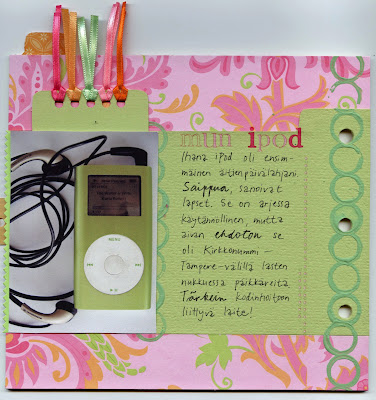 mun ipod
Ihana iPod oli ensim-
mäinen äitienpäivälahjani.
Saippua, sanoivat
lapset. Se on arjessa
käytännöllinen, mutta
aivan ehdoton se
oli Kirkkonummi
Tampere-välillä lasten
nukkuessa paikkareita.
Tärkein kodinhoitoon
liittyvä laite!
MENU